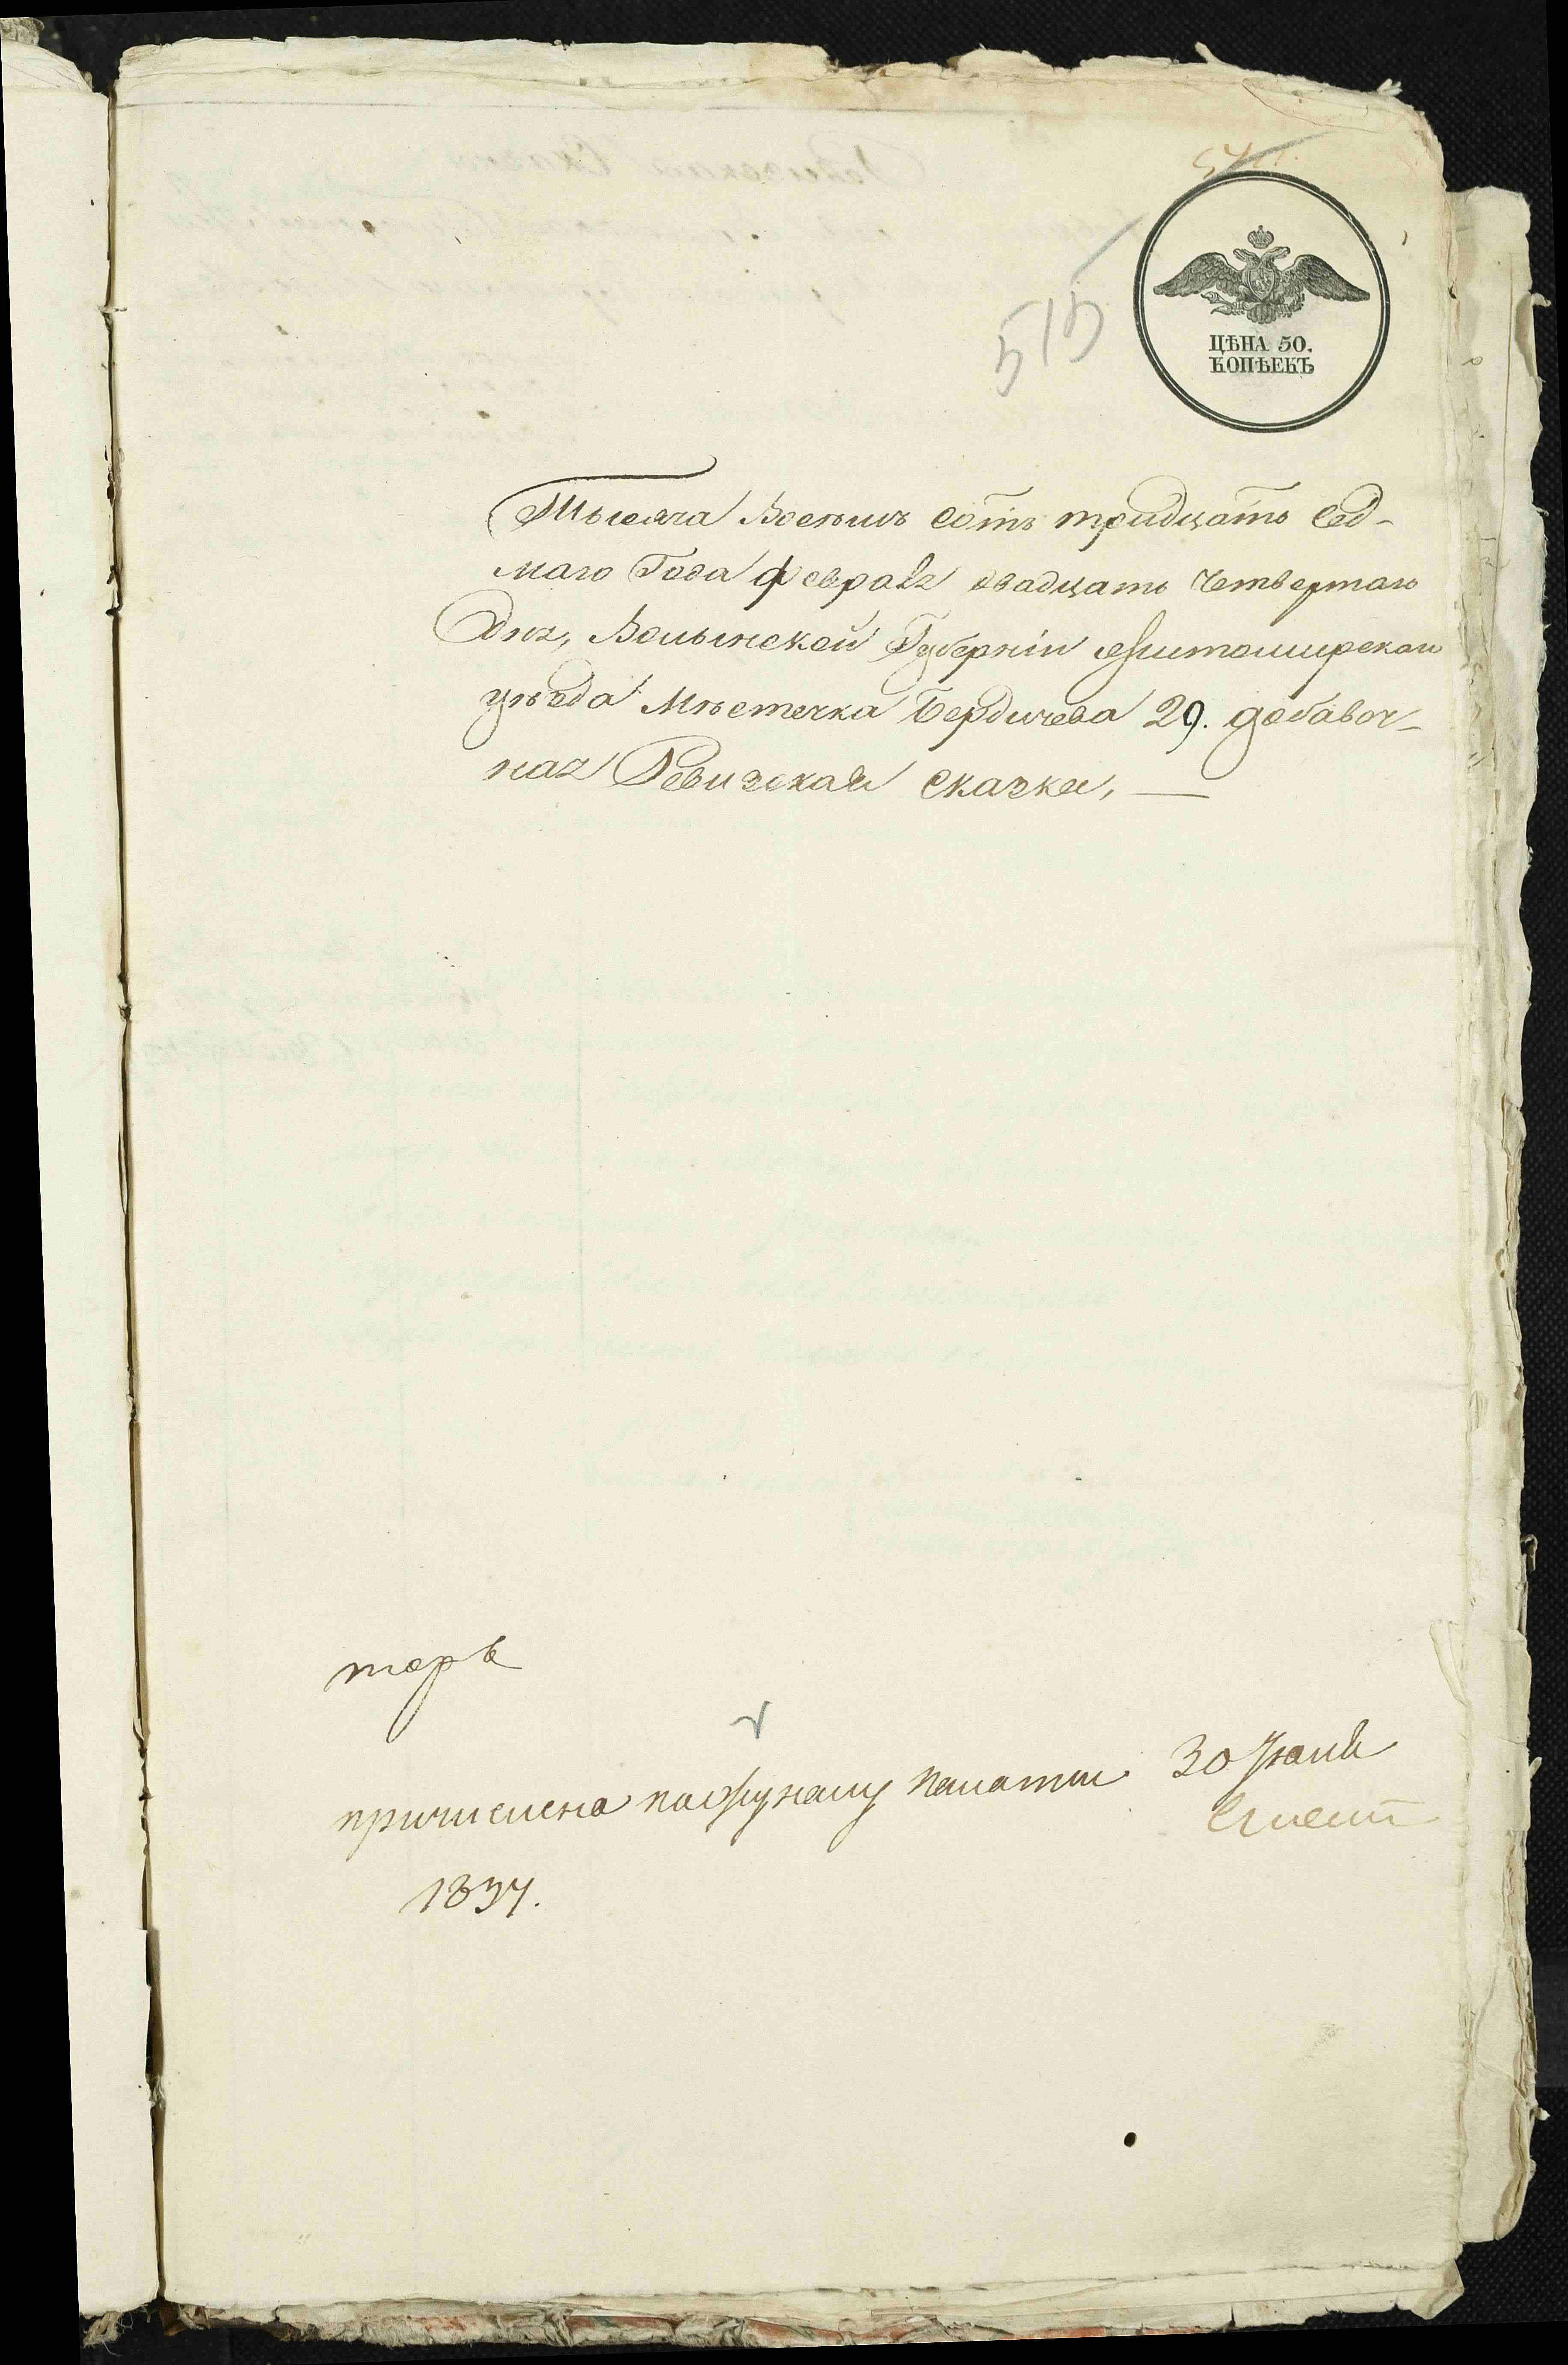 515
ЦѢНА 50.
КОПѢЕКЪ
Тысяча Восемь сотъ тридцать Сед-
маго Года февраля двадцать четвертаго
Дня, Волынской Губерніи Житомирскаго
уѣзда Мѣстечка Бердичева 29. добавоч-
ная Ревизская сказка,
причислена по журналу палаты 30 Іюня
1837.